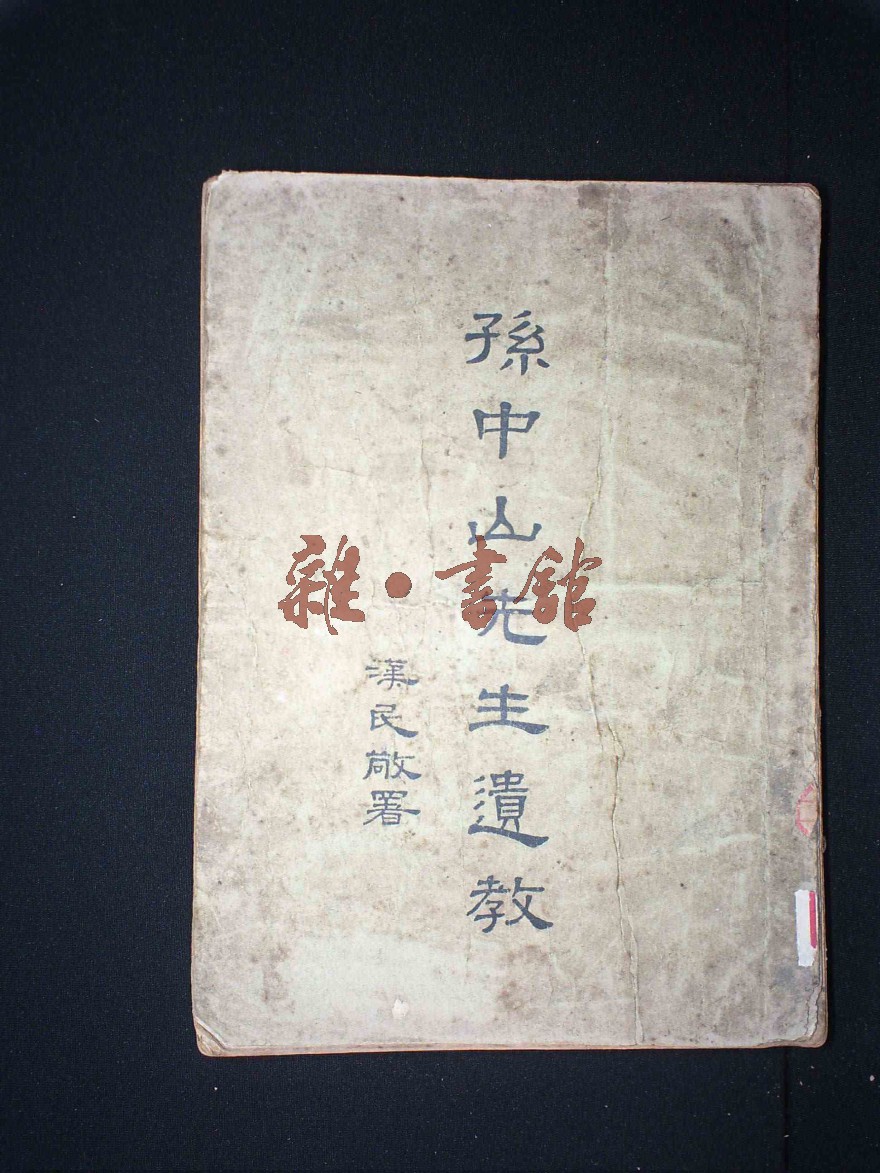 孫中山先生遺教
漢民敬署
雜·書館